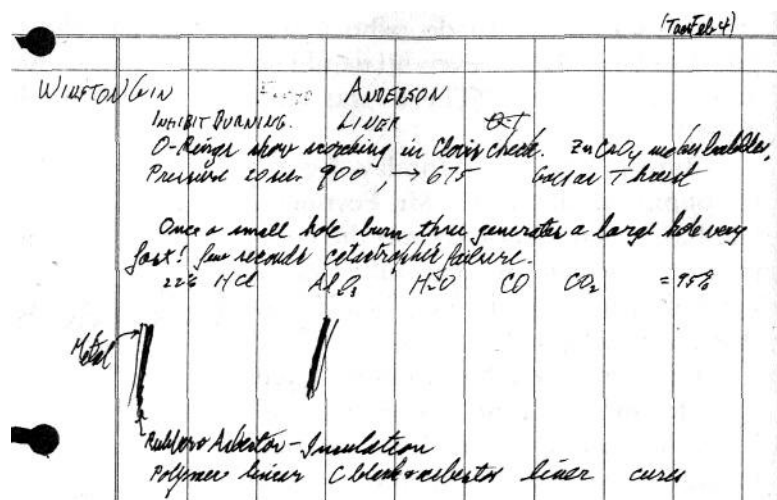 (Tues Feb 4)
WINSTON GIN ANDERSON
INHIBIT BURNING. LINER
O-Rings show scorching in Clovis check. ZnCrO4 makes bubbles,
Pressure 20 sec. 900, → 675 Thrust
Once a small hole burn thru generates a large hole very
fast! few seconds catastrophic failure.
22% HCl Al2O3 H2O CO CO2 = 95%
Metal
Rubber & Asbestos - Insulation
Polymer liner C black & asbestos liner cures